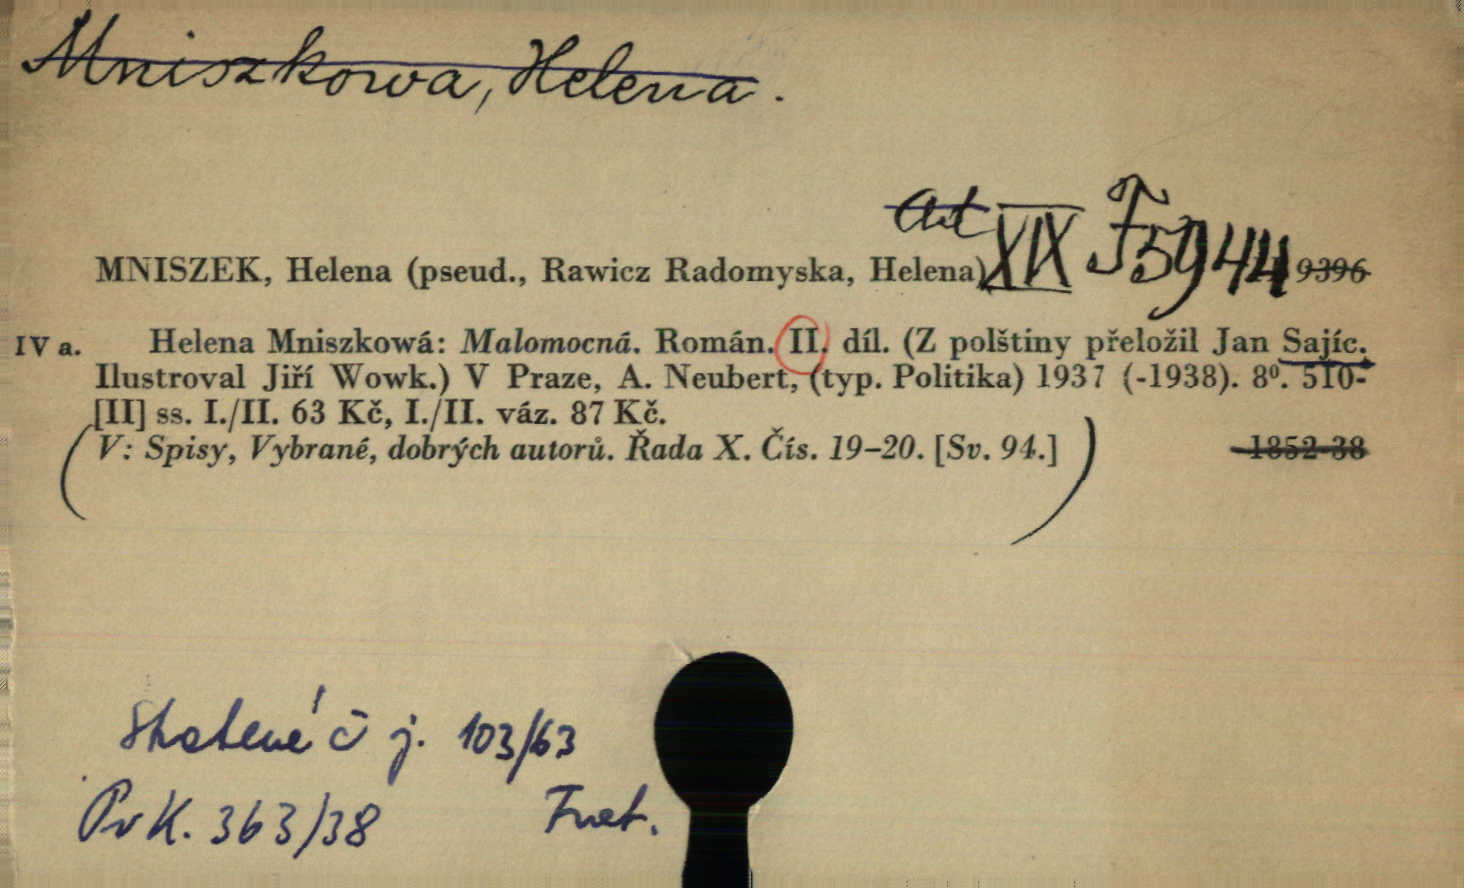 Mniszkowa, Helena.
Aut XIX F 5944
MNISZEK, Helena (pseud., Rawicz Radomyska, Helena) 9396
IV a. Helena Mniszkowá: Malomocná. Román. II. díl. (Z polštiny přeložil Jan Sajíc.
Ilustroval Jiří Wowk.) V Praze, A. Neubert, (typ. Politika) 1937 (-1938). 8⁰. 510-
[II] ss. I./II. 63 Kč, I./II. váz. 87 Kč.
(V: Spisy, Vybrané, dobrých autorů. Řada X. Čís. 19–20. [Sv. 94.]) 1852-38
č j. 103/63
Pv K. 363/38